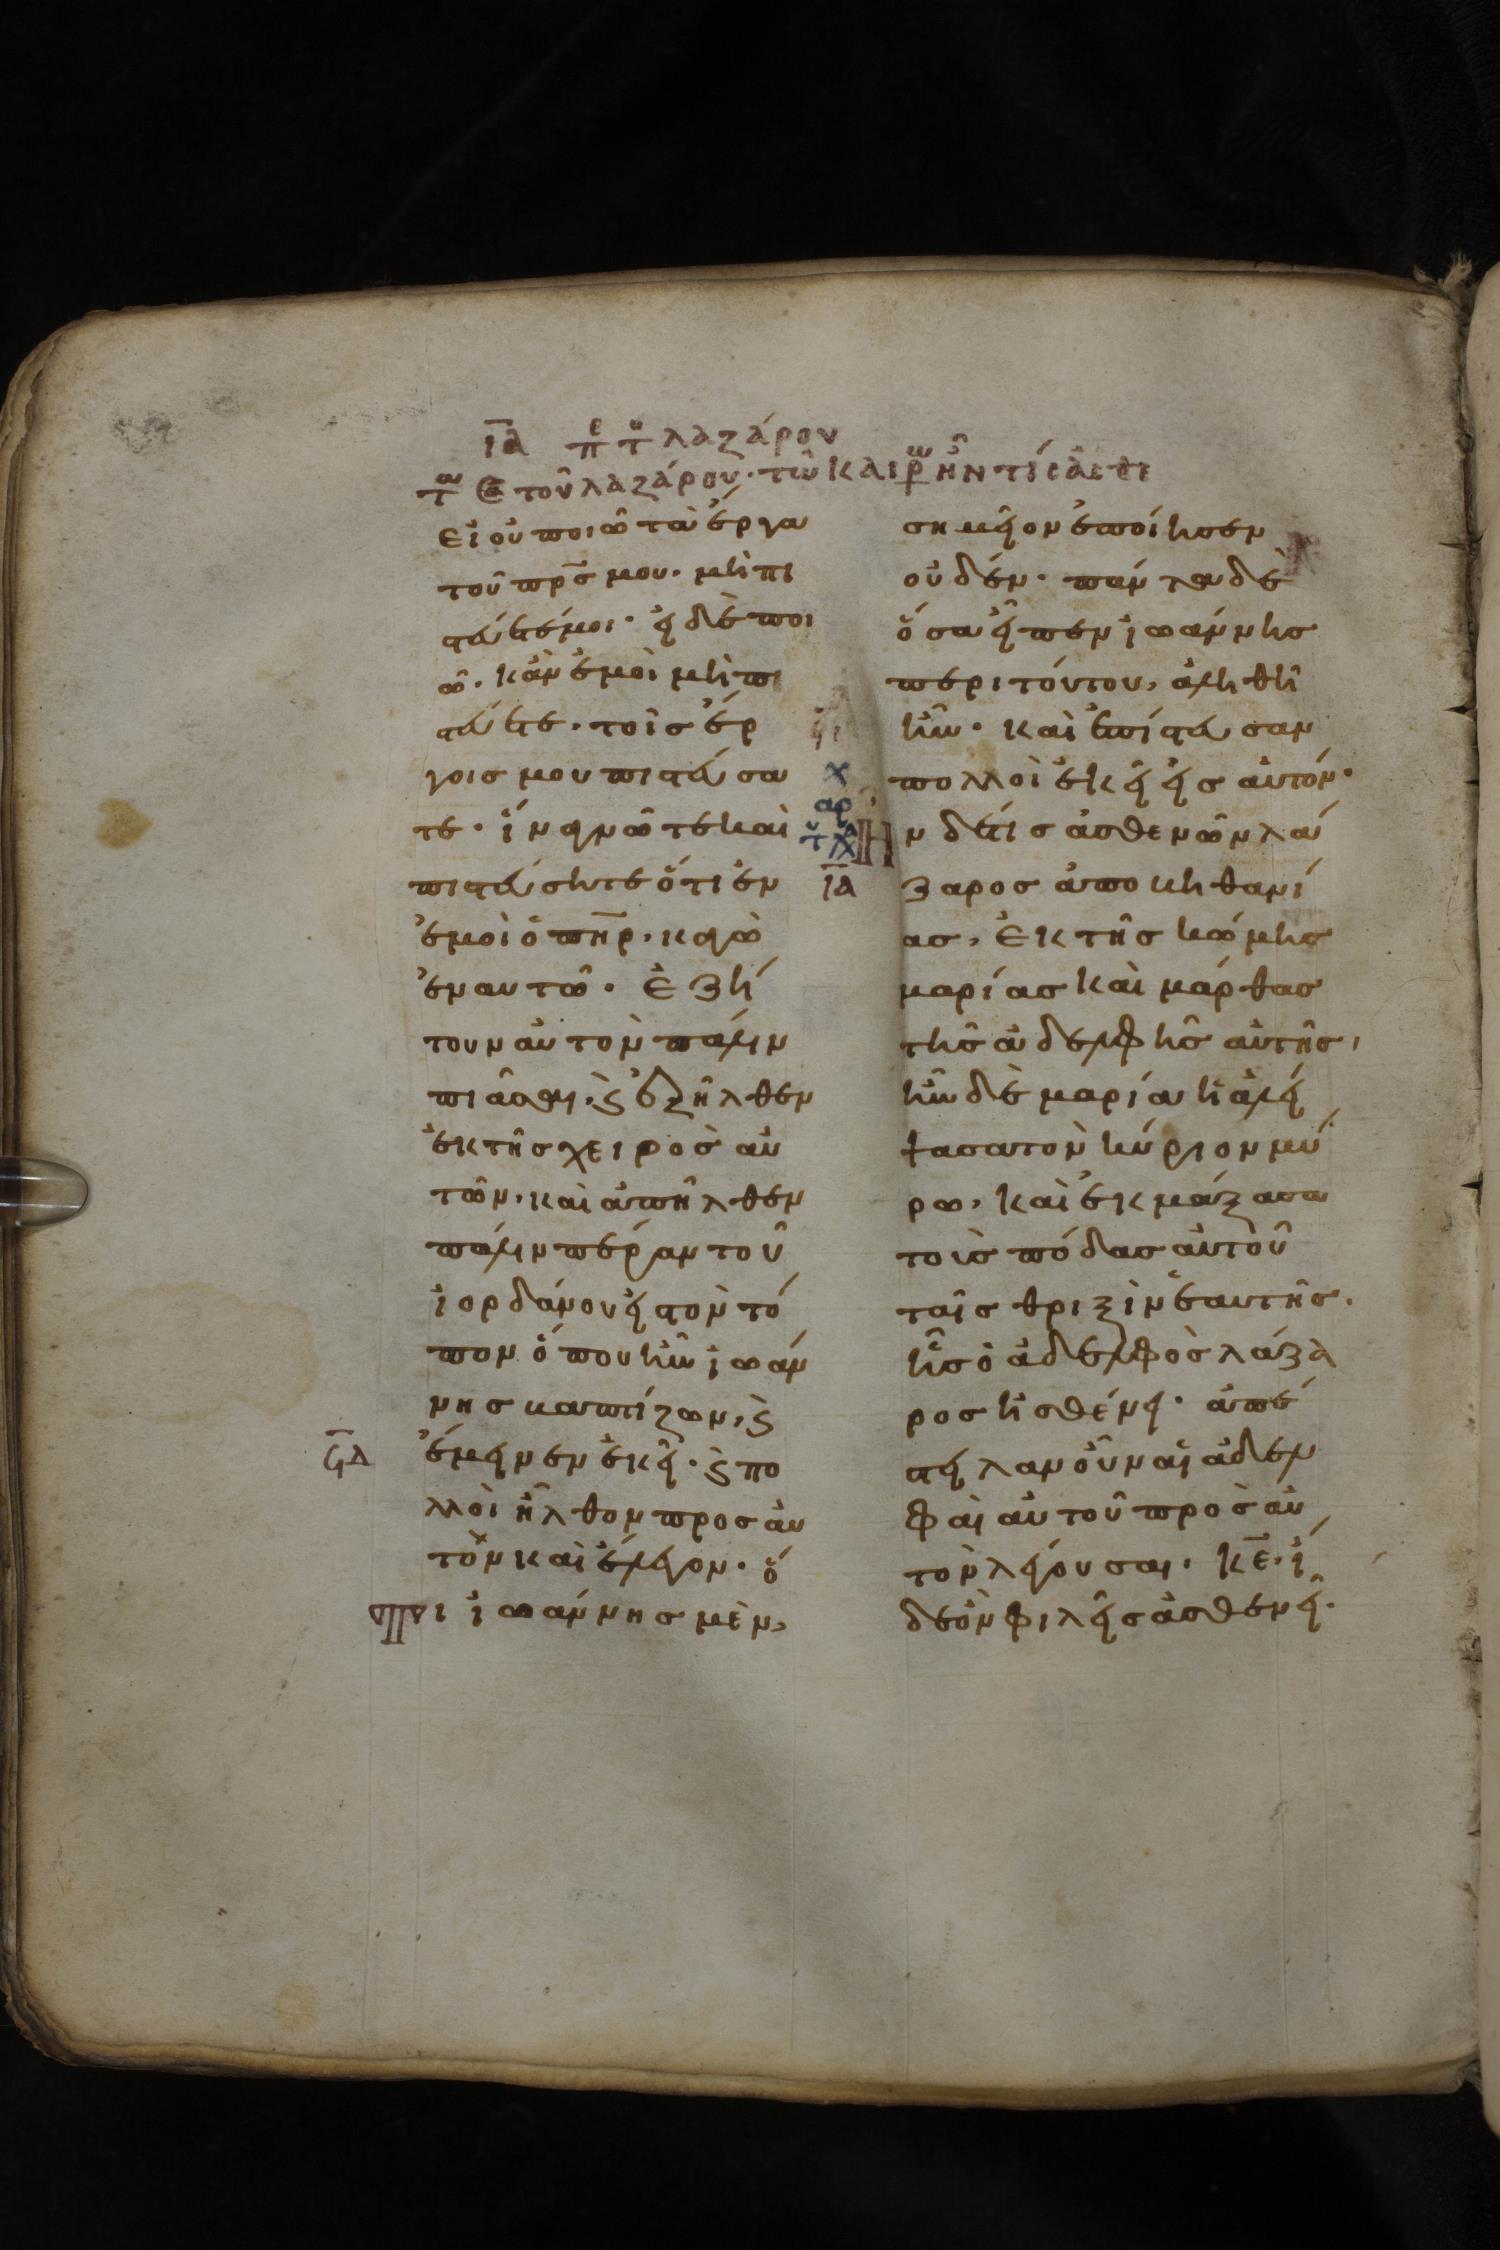 ΙΑ πε του λαζάρου
τω σα τοῦ λαζάρου· τῶ καιρῶ ἦν τίς ἀσθε
εἰ οὐ ποιῶ τὰ ἔργα
τοῦ πρ̅σ μου· μὴ πι
στεύετέ μοι· εἰ δὲ ποι
ῶ· κἂν ἐμοὶ μὴ πι
στεύητε· τοῖς ἔρ
γοις μου πιστεύσα
τε· ἵνα γνῶτε καὶ
πιστεύσητε ὅτι ἐν
ἐμοὶ ὁ πη̅ρ· κἀγὼ
ἐν αυτῶ· Ἐζή
τουν αὐτὸν πάλιν
πιᾶσαι· ϗ ἐξῆλθεν
ἐκ τῆς χειρὸς αὐ
τῶν· καὶ ἀπῆλθεν
πάλιν πέραν τοῦ
ἰορδάνου εἰς τὸν τό
πον ὅπου ἦν ἰωάν
νης βαπτίζων, ϗ
ϟΑ
ἔμεινεν ἐκεῖ· ϗ πο
λλοὶ ἦλθον προς αὐ
τὸν καὶ ἔλεγον· ὅ
τι ἰωάννης μὲν,
σημεῖον ἐποίησεν
οὐδέν· πάντα δὲ
ὅσα εἶπεν ἰωάννης
περι τούτου, ἀληθῆ
ἦν· καὶ ἐπίστευσαν
πολλοὶ ἐκεῖ εἰς αὐτόν·
χ
αρ
Ἦν δέ τις ἀσθενῶν λά
ΙΑ
ζαρος ἀπο βηθανί
ας, ἐκ τῆς κώμης
μαρίας καὶ μάρθας
τῆς ἀδελφῆς αὐτῆς,
ἦν δὲ μαρία ἡ ἀλεί
ψασα τὸν κύριον μύ
ρω, καὶ ἐκμάξασα
τοὺς πόδας αὐτοῦ
ταῖς θριξὶν ἑαυτῆς·
ἧς ὁ ἀδελφὸς λάζα
ρος ἠσθένει· ἀπέ
στειλαν οὖν αἱ ἀδελ
φαὶ αὐτοῦ πρὸς αὐ
τὸν λέγουσαι· κ̅ε, ἴ
δε ὃν φιλεῖς ἀσθενεῖ·